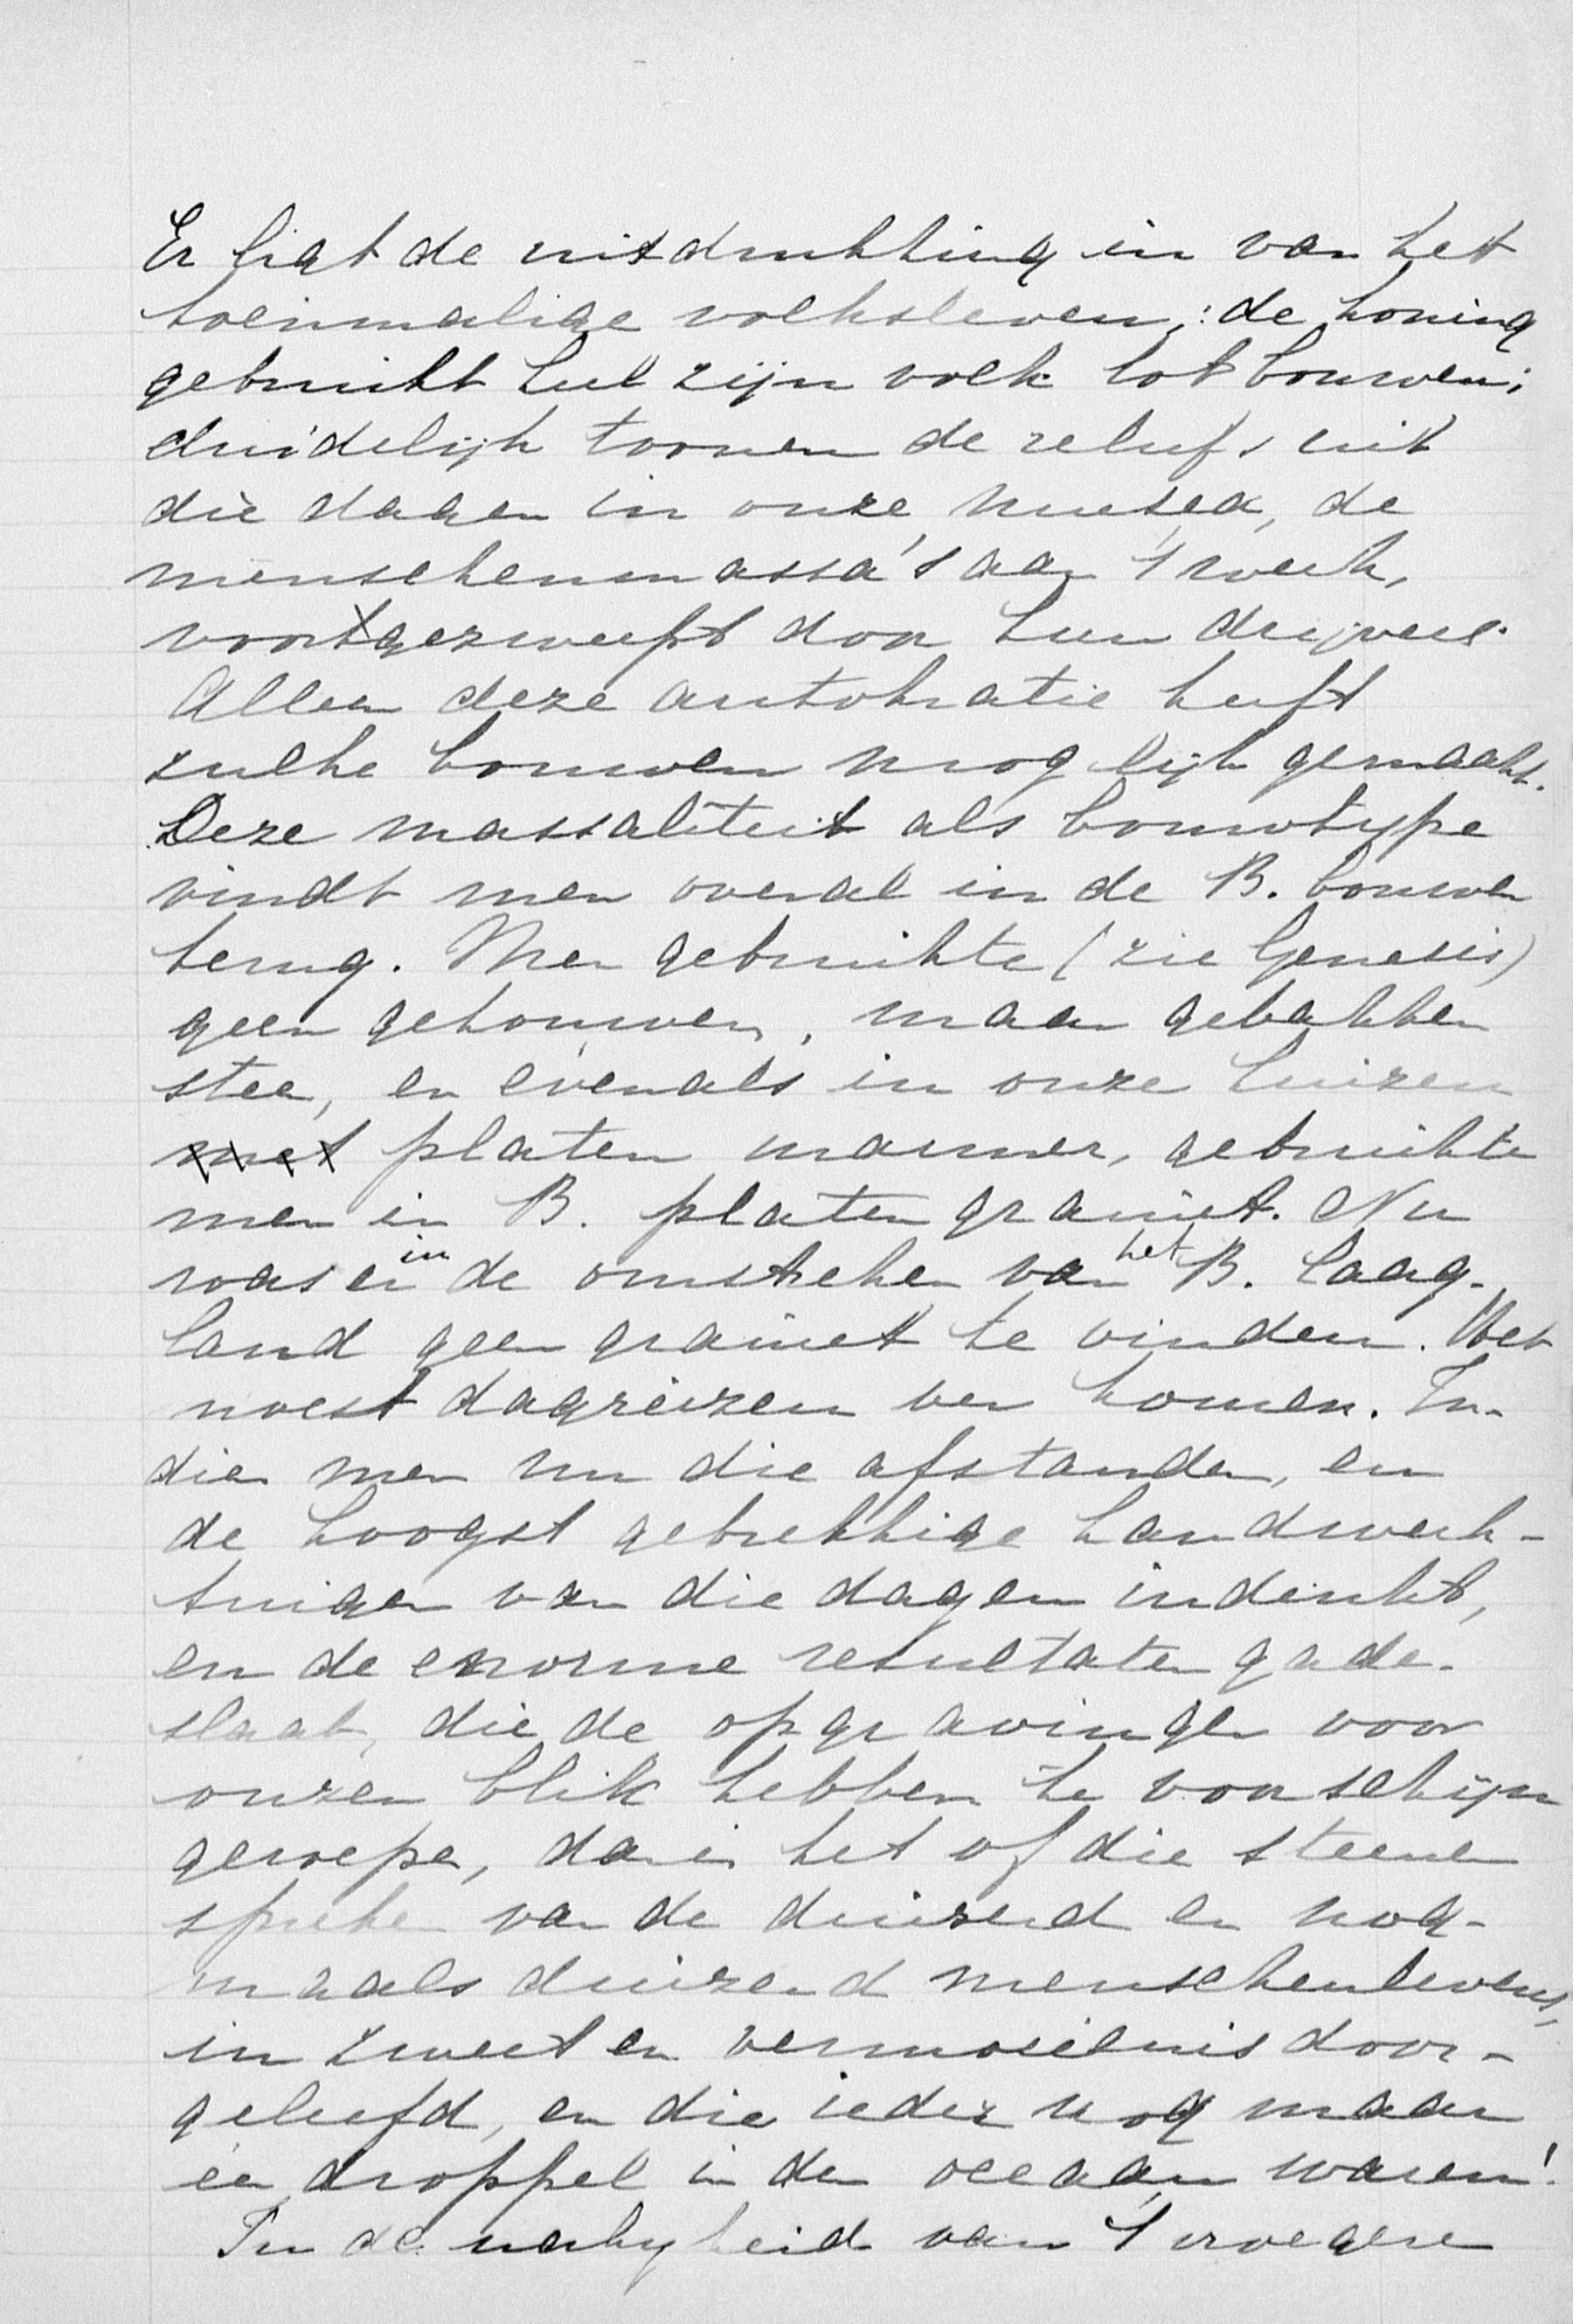 Er ligt de uitdrukking in van het
toenmalige volksleven; de koning
gebruikt heel zijn volk tot bouwen;
duidelijk toonen de reliefs uit
die dagen in onze musea, de
menschenmassa's aan 't werk,
voortgezweept door hun drijvers.
Alleen deze autokratie heeft
zulke bouwen mogelijk gemaakt.
Deze massaliteit als bouwtype
vindt men overal in de B. bouwen
terug. Men gebruikte (zie Genesis)
geen gehouwen, maar gebakken
steen, en evenals in onze huizen
met platen marmer, gebruikte
men in B. platen graniet. Nu
was er in de omstreken van het B. Laag-
land geen graniet te vinden. Het
moest dagreizen ver komen. In-
dien men nu die afstanden, en
de hoogst gebrekkige handwerk-
tuigen van die dagen indenkt,
en de enorme resultaten gade-
slaat, die de opgravingen voor
onzen blik hebben te voorschijn
geroepen, dan is het of die steenen
spreken van de duizend en nog-
maals duizend menschenlevens,
in zweet en vermoeienis door-
geleefd, en die ieder nog maar
één droppel in den oceaan waren!
In de nabyheid van 't vroegere